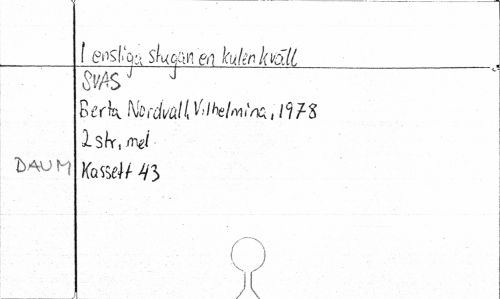 I ensliga stugan en kulen kväll
SVAS
Berta Nordvall, Vilhelmina, 1978
2 str, mel
DAUM Kassett 43